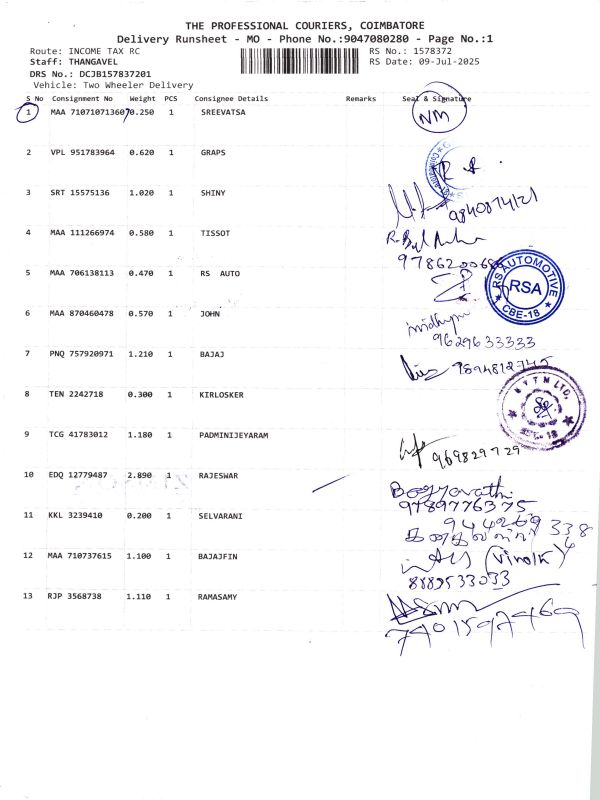 THE PROFESSIONAL COURIERS, COIMBATORE
Delivery Runsheet - MO - Phone No.:9047080280 - Page No.:1
Route: INCOME TAX RC RS No.: 1578372
Staff: THANGAVEL RS Date: 09-Jul-2025
DRS No.: DCJB157837201
Vehicle: Two Wheeler Delivery
S No Consignment No Weight PCS Consignee Details Remarks Seal & Signature
1 MAA 71071071360 0.250 1 SREEVATSA NM
2 VPL 951783964 0.620 1 GRAPS
3 SRT 15575136 1.020 1 SHINY
9840874121
4 MAA 111266974 0.580 1 TISSOT
5 MAA 706138113 0.470 1 RS AUTO
RS AUTOMOTIVE
RSA
CBE-18
6 MAA 870460478 0.570 1 JOHN
9629633333
7 PNQ 757920971 1.210 1 BAJAJ
7894812745
8 TEN 2242718 0.300 1 KIRLOSKER
9 TCG 41783012 1.180 1 PADMINIJEYARAM
969829729
10 EDQ 12779487 2.890 1 RAJESWAR
9789776375
11 KKL 3239410 0.200 1 SELVARANI
944269 338
12 MAA 710737615 1.100 1 BAJAJFIN
8889533033
13 RJP 3568738 1.110 1 RAMASAMY